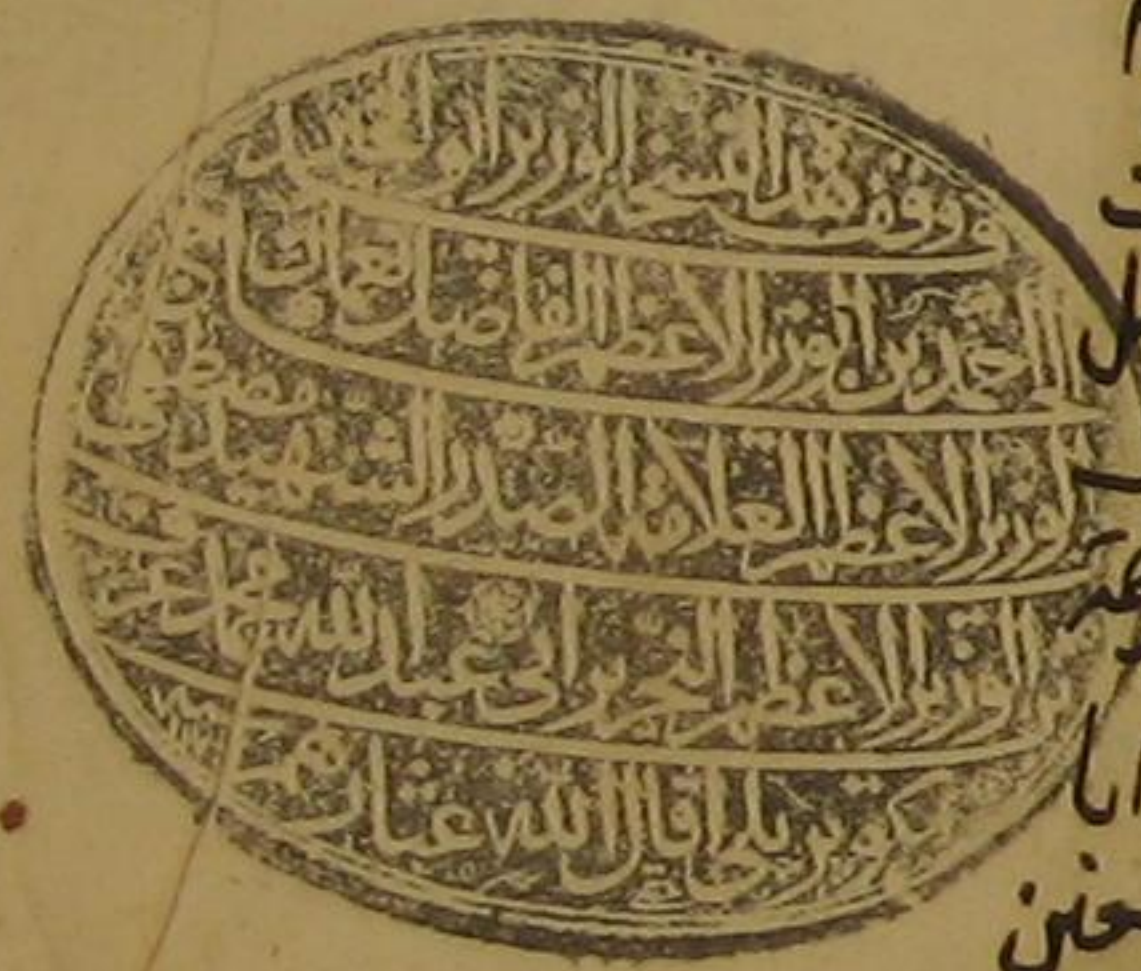 و وقف هذه النسخة الوزير ابو الخير
الحاج احمد بن الوزير الاعظم الفاضل نعمان بن
الوزير الاعظم العلامة الصدر الشهيد مصطفى
بن الوزير الاعظم النحرير ابى عبد الله محمد عرف
بكوپريلى اقال الله عثارهم